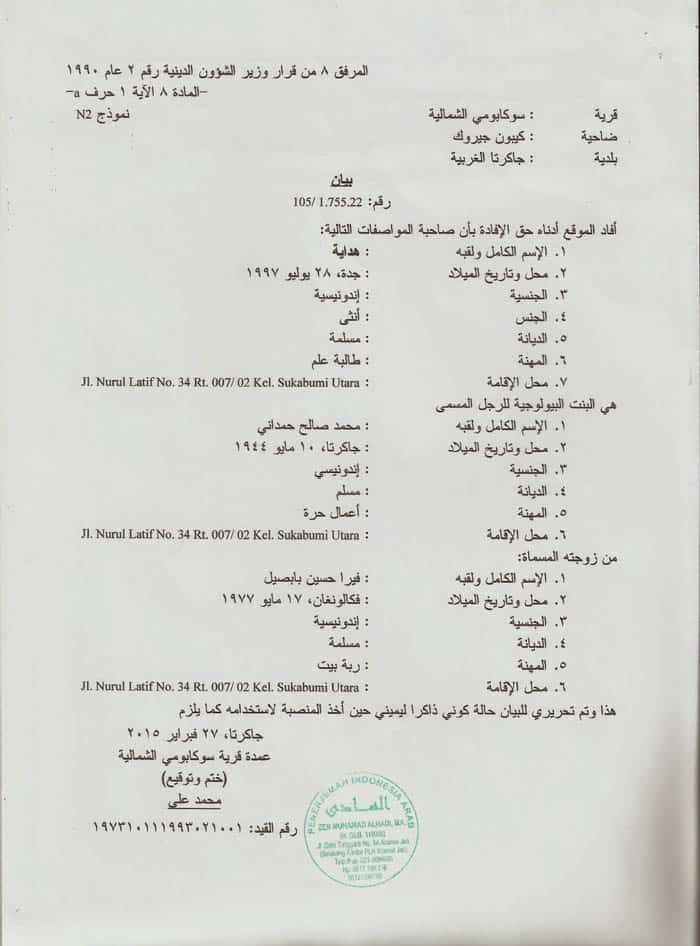 المرفق ٨ من قرار وزير الشؤون الدينية رقم ٢ عام ١٩٩٠
-المادة ٨ الآية ١ حرف a-
نموذج N2
قرية : سوكابومي الشمالية
ضاحية : كيبون جيروك
بلدية : جاكرتا الغربية
بيان
رقم: 105/ 1.755.22
أفاد الموقع أدناه حق الإفادة بأن صاحبة المواصفات التالية:
١. الإسم الكامل ولقبه : هداية
٢. محل وتاريخ الميلاد : جدة، ٢٨ يوليو ١٩٩٧
٣. الجنسية : إندونيسية
٤. الجنس : أنثى
٥. الديانة : مسلمة
٦. المهنة : طالبة علم
٧. محل الإقامة : Jl. Nurul Latif No. 34 Rt. 007/ 02 Kel. Sukabumi Utara
هي البنت البيولوجية للرجل المسمى
١. الإسم الكامل ولقبه : محمد صالح حمداني
٢. محل وتاريخ الميلاد : جاكرتا، ١٠ مايو ١٩٤٤
٣. الجنسية : إندونيسي
٤. الديانة : مسلم
٥. المهنة : أعمال حرة
٦. محل الإقامة : Jl. Nurul Latif No. 34 Rt. 007/ 02 Kel. Sukabumi Utara
من زوجته المسماة:
١. الإسم الكامل ولقبه : فيرا حسين بابصيل
٢. محل وتاريخ الميلاد : فكالونغان، ١٧ مايو ١٩٧٧
٣. الجنسية : إندونيسية
٤. الديانة : مسلمة
٥. المهنة : ربة بيت
٦. محل الإقامة : Jl. Nurul Latif No. 34 Rt. 007/ 02 Kel. Sukabumi Utara
هذا وتم تحريري للبيان حالة كوني ذاكرا ليميني حين أخذ المنصبة لاستخدامه كما يلزم
جاكرتا، ٢٧ فبراير ٢٠١٥
عمدة قرية سوكابومي الشمالية
(ختم وتوقيع)
محمد علي
رقم القيد: ١٩٧٣١٠١١١٩٩٣٠٢١٠٠١
PENERJEMAH INDONESIA ARAB
الهادي
MUHAMAD ALHADI, MA.